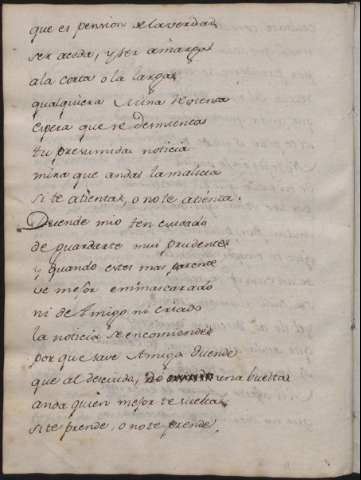 que es pension de la verdad
ser aceda, y ser amarga
a la corta o la larga
qualquiera Mina rebienta
espera que se desmienta
tu presumida noticia
mira que anda la malicia
si te atienta, o no te atienta.
Duende mio ten cuidado
de guardarte mui prudente
y quando estes mas
ve mejor emmascarado
ni de Amigo, ni criado
la noticia se encomiende
por que save Amigo duende
que al descuido, de una buelta
anda quien mejor te suelta
si te prende, o no te prende.